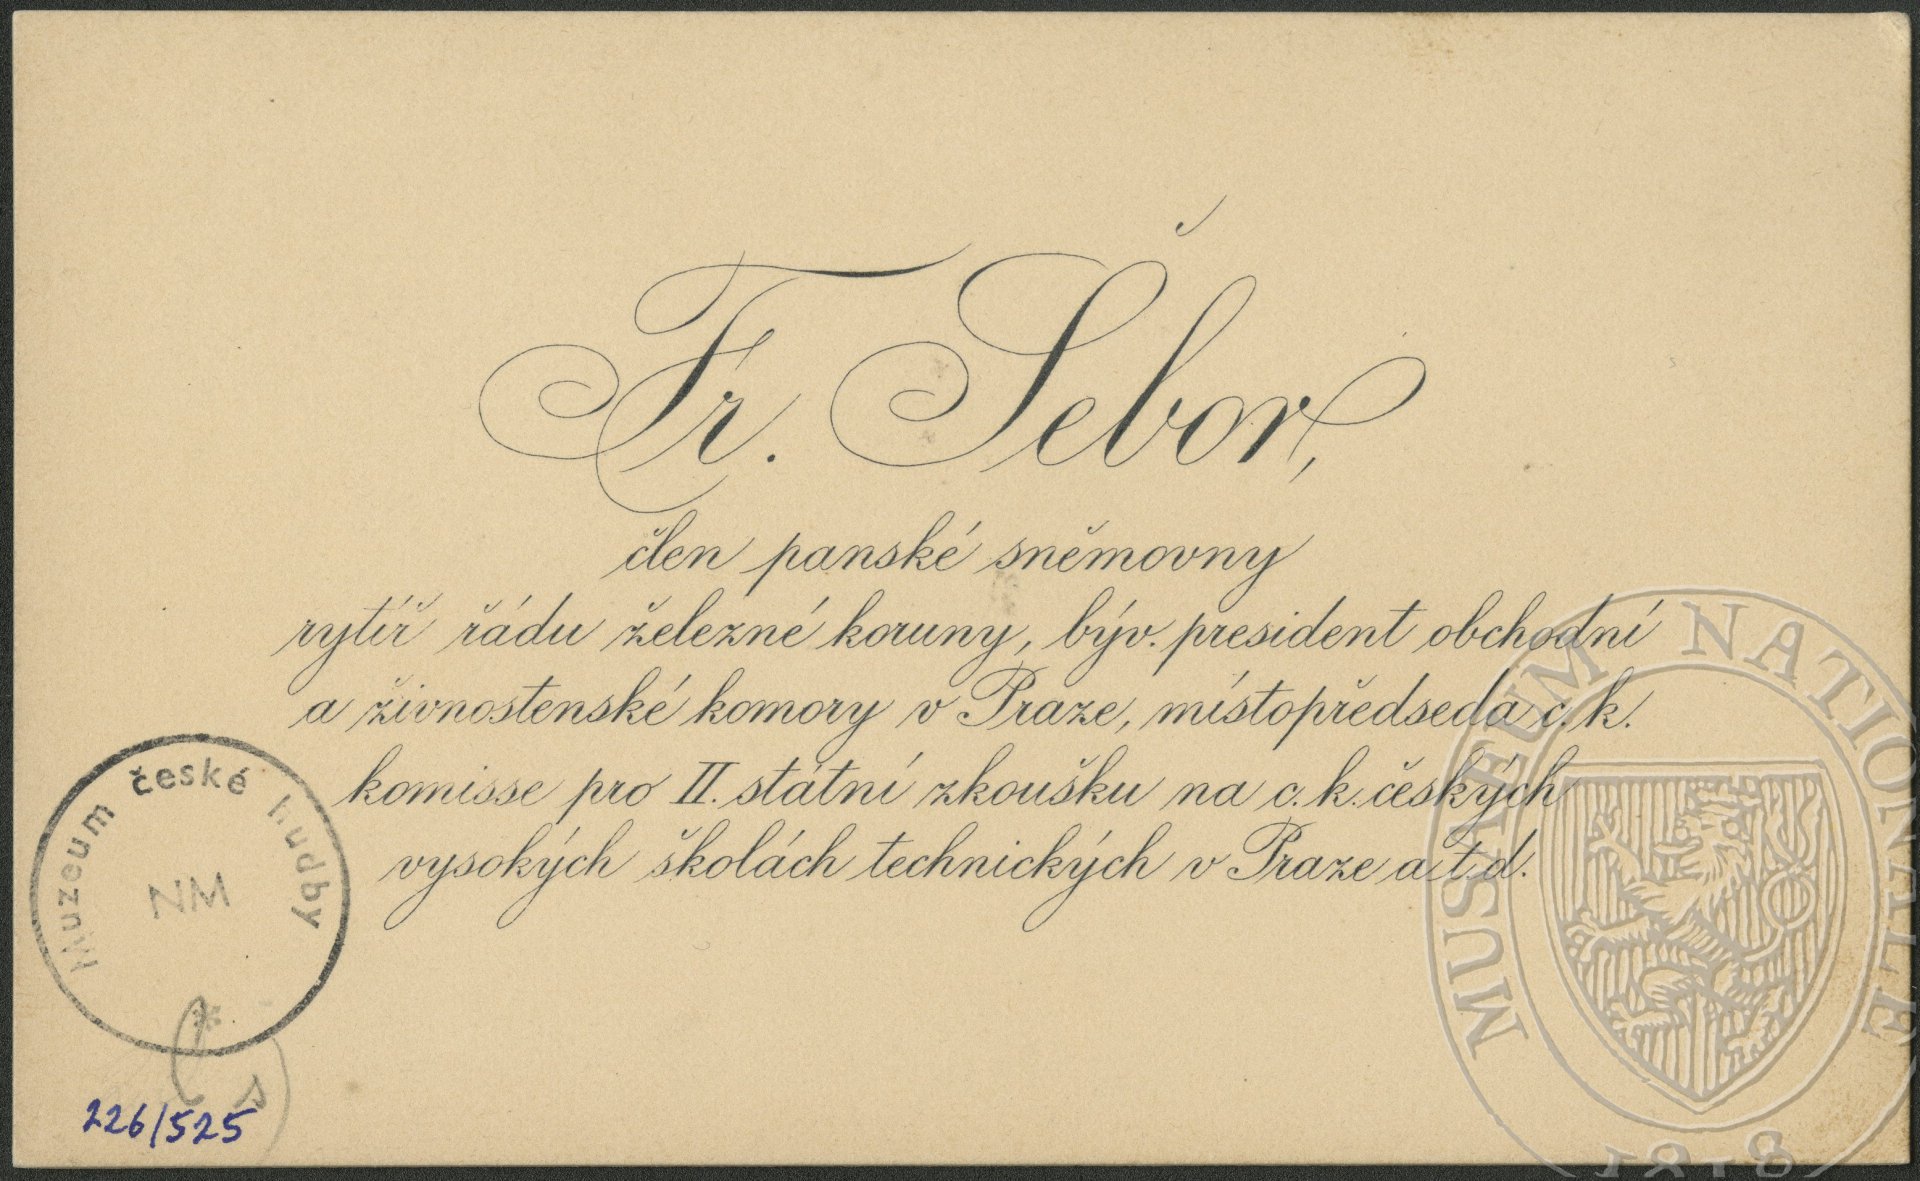 Fr. Šebor,
člen panské sněmovny
rytíř řádu železné koruny, býv. president obchodní
a živnostenské komory v Praze, místopředseda c. k.
komisse pro II. státní zkoušku na c. k. českých
vysokých školách technických v Praze a t. d.
Muzeum české hudby
NM
*
226/525
MUSAEUM NATIONALE
1818